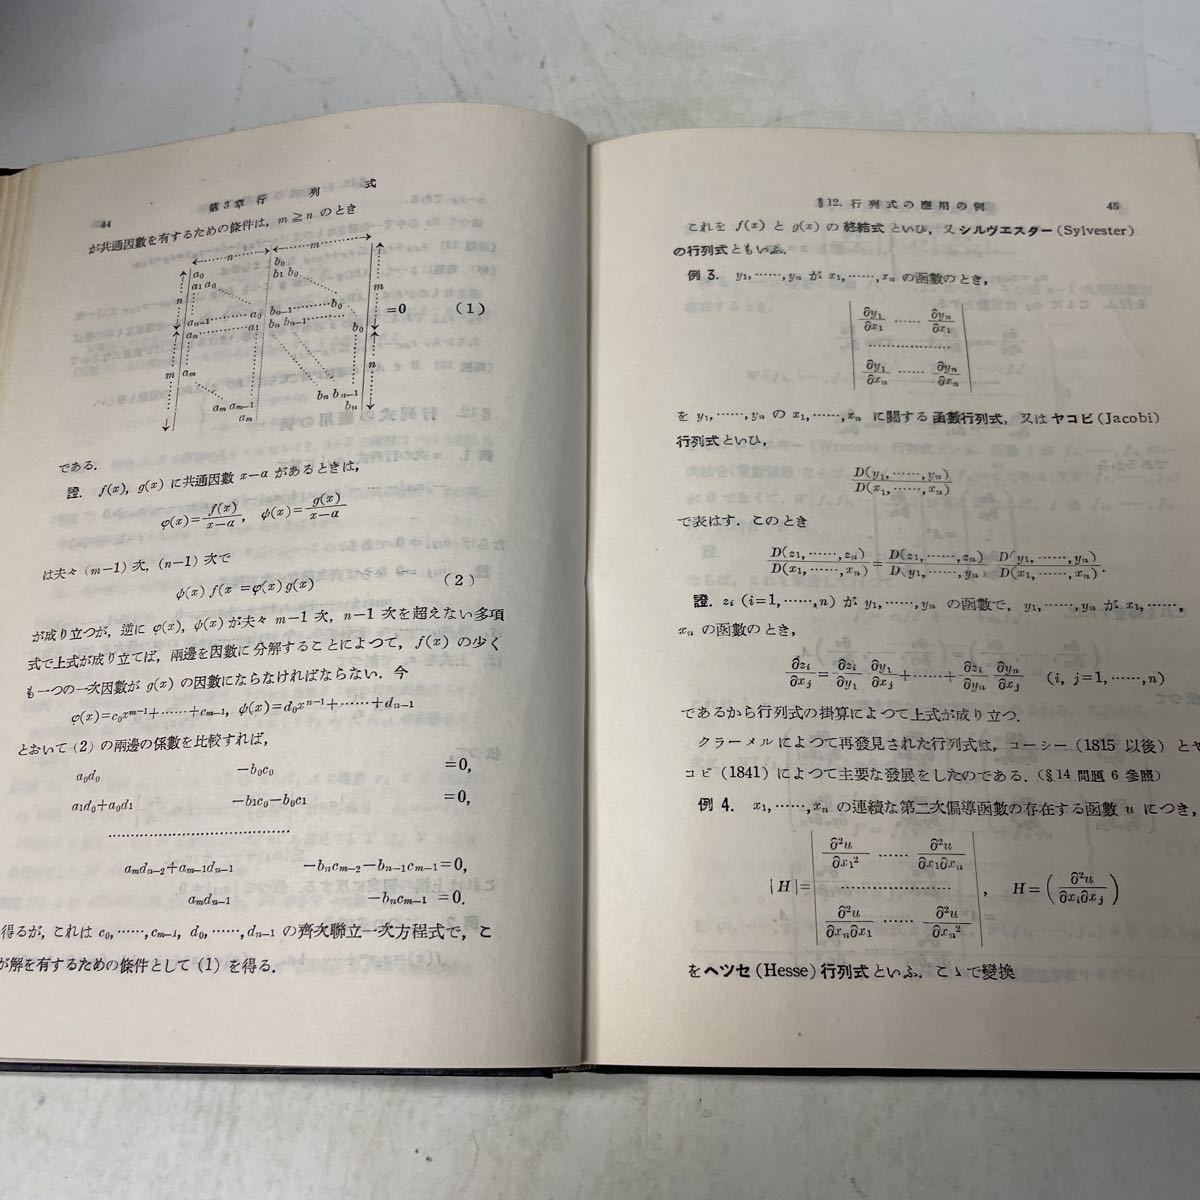 44 第3章 行 列 式
が共通因數を有するための條件は，m≧n のとき
←……n……→←……m……→
a₀ b₀
a₁ a₀ b₁ b₀
aₙ₋₁ …… a₀ bₙ₋₁ …… b₀
aₙ …… a₁ bₙ bₙ₋₁ …… b₀
aₘ
aₘ aₘ₋₁ bₙ bₙ₋₁
aₘ bₙ
n m m n
=0 (1)
である．
證． f(x), g(x) に共通因數 x−α があるときは，
φ(x)=f(x)/(x−α), ψ(x)=g(x)/(x−α)
は夫々 (m−1) 次，(n−1) 次で
ψ(x) f(x =φ(x) g(x) (2)
が成り立つが，逆に φ(x), ψ(x) が夫々 m−1 次，n−1 次を超えない多項
式で上式が成り立てば，兩邊を因數に分解することによつて，f(x) の少く
も一つの一次因數が g(x) の因數にならなければならない．今
φ(x)=c₀xᵐ⁻¹+……+cₘ₋₁, ψ(x)=d₀xⁿ⁻¹+……+dₙ₋₁
とおいて (2) の兩邊の係數を比較すれば，
a₀d₀ −b₀c₀ =0,
a₁d₀+a₀d₁ −b₁c₀−b₀c₁ =0,
……………………………
aₘdₙ₋₂+aₘ₋₁dₙ₋₁ −bₙcₘ₋₂−bₙ₋₁cₘ₋₁=0,
aₘdₙ₋₁ −bₙcₘ₋₁ =0.
得るが，これは c₀,……,cₘ₋₁, d₀,……,dₙ₋₁ の齊次聯立一次方程式で，こ
が解を有するための條件として (1) を得る．
§12. 行列式の應用の例 45
これを f(x) と g(x) の終結式といひ，又シルヴエスター (Sylvester)
の行列式ともいふ．
例 3. y₁,……,yₙ が x₁,……,xₙ の函數のとき，
| ∂y₁/∂x₁ …… ∂yₙ/∂x₁ |
| …………………… |
| ∂y₁/∂xₙ …… ∂yₙ/∂xₙ |
を y₁,……,yₙ の x₁,……,xₙ に關する函數行列式，又はヤコビ (Jacobi)
行列式といひ，
D(y₁,……,yₙ)/D(x₁,……,xₙ)
で表はす．このとき
D(z₁,……,zₙ)/D(x₁,……,xₙ)=D(z₁,……,zₙ)/D(y₁,……,yₙ) D(y₁,……,yₙ)/D(x₁,……,xₙ).
證． zᵢ (i=1,……,n) が y₁,……,yₙ の函數で，y₁,……,yₙ が x₁,……,
xₙ の函數のとき，
∂zᵢ/∂xⱼ=∂zᵢ/∂y₁ ∂y₁/∂xⱼ+……+∂zᵢ/∂yₙ ∂yₙ/∂xⱼ (i, j=1,……,n)
であるから行列式の掛算によつて上式が成り立つ．
クラーメルによつて再發見された行列式は，コーシー (1815 以後) とヤ
コビ (1841) によつて主要な發展をしたのである．(§14 問題 6 參照)
例 4. x₁,……,xₙ の連續な第二次偏導函數の存在する函數 u につき，
| ∂²u/∂x₁² …… ∂²u/∂x₁∂xₙ |
|H|= | …………………… | , H=(∂²u/∂xᵢ∂xⱼ)
| ∂²u/∂xₙ∂x₁ …… ∂²u/∂xₙ² |
をヘツセ (Hesse) 行列式といふ．こゝで變換